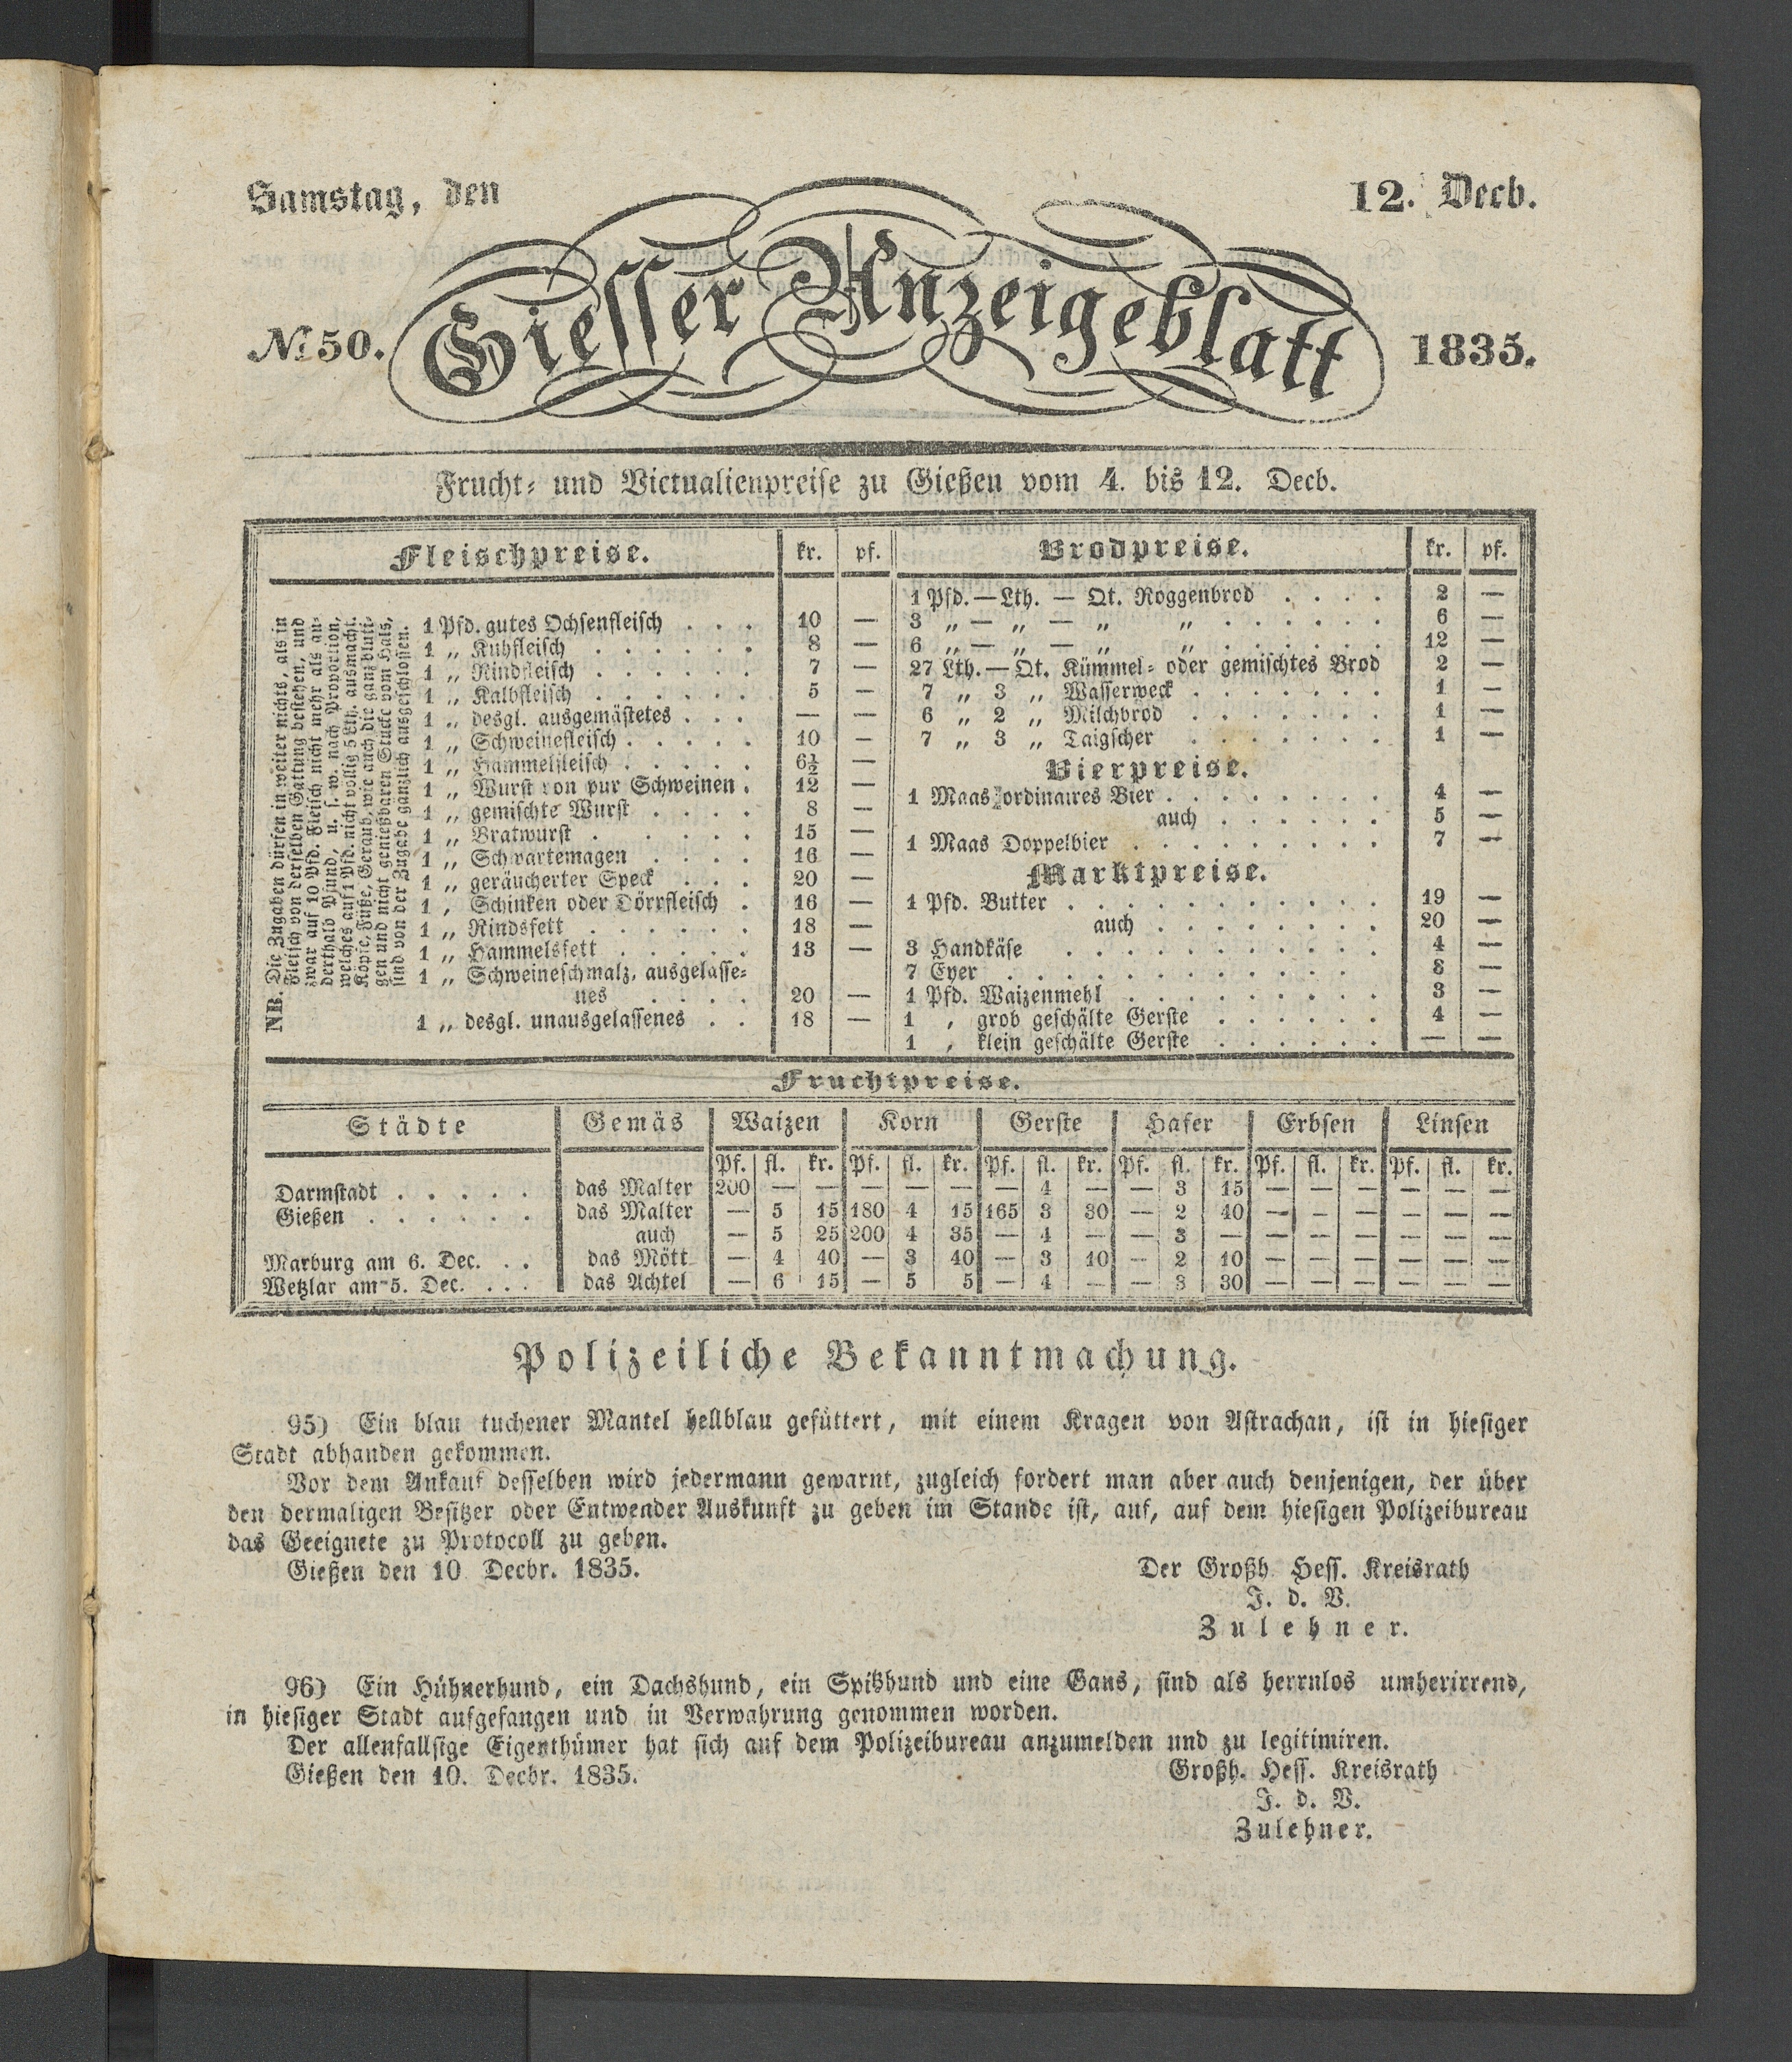 Samstag, den 12. Decb.
Giesser Anzeigeblatt
No. 50. 1835.
Frucht- und Victualienpreise zu Gießen vom 4. bis 12. Decb.
Fleischpreise. kr. pf.
NB. Die Zugaben dürfen in weiter nichts, als in
Fleisch von derselben Gattung bestehen, und
zwar auf 10 Pfd. Fleisch nicht mehr als an-
derthalb Pfund, u. s. w. nach Proportion,
welches auf 1 Pfd. nicht völlig 5 Lth. ausmacht.
Köpfe, Füße, Geraub, wie auch die ganz bluti-
gen und nicht genießbaren Stücke vom Hals,
sind von der Zugabe gänzlich ausgeschlossen.
1 Pfd. gutes Ochsenfleisch . . . 10 —
1 „ Kuhfleisch . . . . . . 8 —
1 „ Rindfleisch . . . . . . 7 —
1 „ Kalbfleisch . . . . . . 5 —
1 „ desgl. ausgemästetes . . . — —
1 „ Schweinefleisch . . . . . 10 —
1 „ Hammelfleisch . . . . . 6½ —
1 „ Wurst von pur Schweinen . 12 —
1 „ gemischte Wurst . . . . 8 —
1 „ Bratwurst . . . . . . 15 —
1 „ Schwartemagen . . . . 16 —
1 „ geräucherter Speck . . . 20 —
1 , Schinken oder Dörrfleisch . 16 —
1 „ Rindsfett . . . . . . 18 —
1 „ Hammelsfett . . . . . 13 —
1 „ Schweineschmalz, ausgelasse-
nes . . . . 20 —
1 „ desgl. unausgelassenes . . 18 —
Brodpreise. kr. pf.
1 Pfd. — Lth. — Qt. Roggenbrod . . . . 2 —
3 „ — „ — „ „ . . . . . . 6 —
6 „ — „ — „ „ . . . . . . 12 —
27 Lth. — Qt. Kümmel- oder gemischtes Brod 2 —
7 „ 3 „ Wasserweck . . . . . . . 1 —
6 „ 2 „ Milchbrod . . . . . . . 1 —
7 „ 3 „ Taigscher . . . . . . . 1 —
Bierpreise.
1 Maas ordinaires Bier . . . . . . . . 4 —
auch . . . . . . 5 —
1 Maas Doppelbier . . . . . . . . . 7 —
Marktpreise.
1 Pfd. Butter . . . . . . . . . . . 19 —
auch . . . . . . . . 20 —
3 Handkäse . . . . . . . . . . . 4 —
7 Eyer . . . . . . . . . . . . . 8 —
1 Pfd. Waizenmehl . . . . . . . . . 3 —
1 , grob geschälte Gerste . . . . . . 4 —
1 , klein geschälte Gerste . . . . . . — —
Fruchtpreise.
Städte Gemäs Waizen Korn Gerste Hafer Erbsen Linsen
Pf. fl. kr. Pf. fl. kr. Pf. fl. kr. Pf. fl. kr. Pf. fl. kr. Pf. fl. kr.
Darmstadt . . . . . das Malter 200 — — — — — — 4 — — 3 15 — — — — — —
Gießen . . . . . . das Malter — 5 15 180 4 15 165 3 30 — 2 40 — — — — — —
auch — 5 25 200 4 35 — 4 — — 3 — — — — — — —
Marburg am 6. Dec. . . das Mött — 4 40 — 3 40 — 3 10 — 2 10 — — — — — —
Wetzlar am 5. Dec. . . . das Achtel — 6 15 — 5 5 — 4 — — 3 30 — — — — — —
Polizeiliche Bekanntmachung.
95) Ein blau tuchener Mantel hellblau gefüttert, mit einem Kragen von Astrachan, ist in hiesiger
Stadt abhanden gekommen.
Vor dem Ankauf desselben wird jedermann gewarnt, zugleich fordert man aber auch denjenigen, der über
den dermaligen Besitzer oder Entwender Auskunft zu geben im Stande ist, auf, auf dem hiesigen Polizeibureau
das Geeignete zu Protocoll zu geben.
Gießen den 10 Decbr. 1835. Der Großh Hess. Kreisrath
J. d. V.
Zulehner.
96) Ein Hühnerhund, ein Dachshund, ein Spitzhund und eine Gans, sind als herrnlos umherirrend,
in hiesiger Stadt aufgefangen und in Verwahrung genommen worden.
Der allenfallsige Eigenthümer hat sich auf dem Polizeibureau anzumelden und zu legitimiren.
Gießen den 10. Decbr. 1835. Großh. Hess. Kreisrath
J. d. V.
Zulehner.